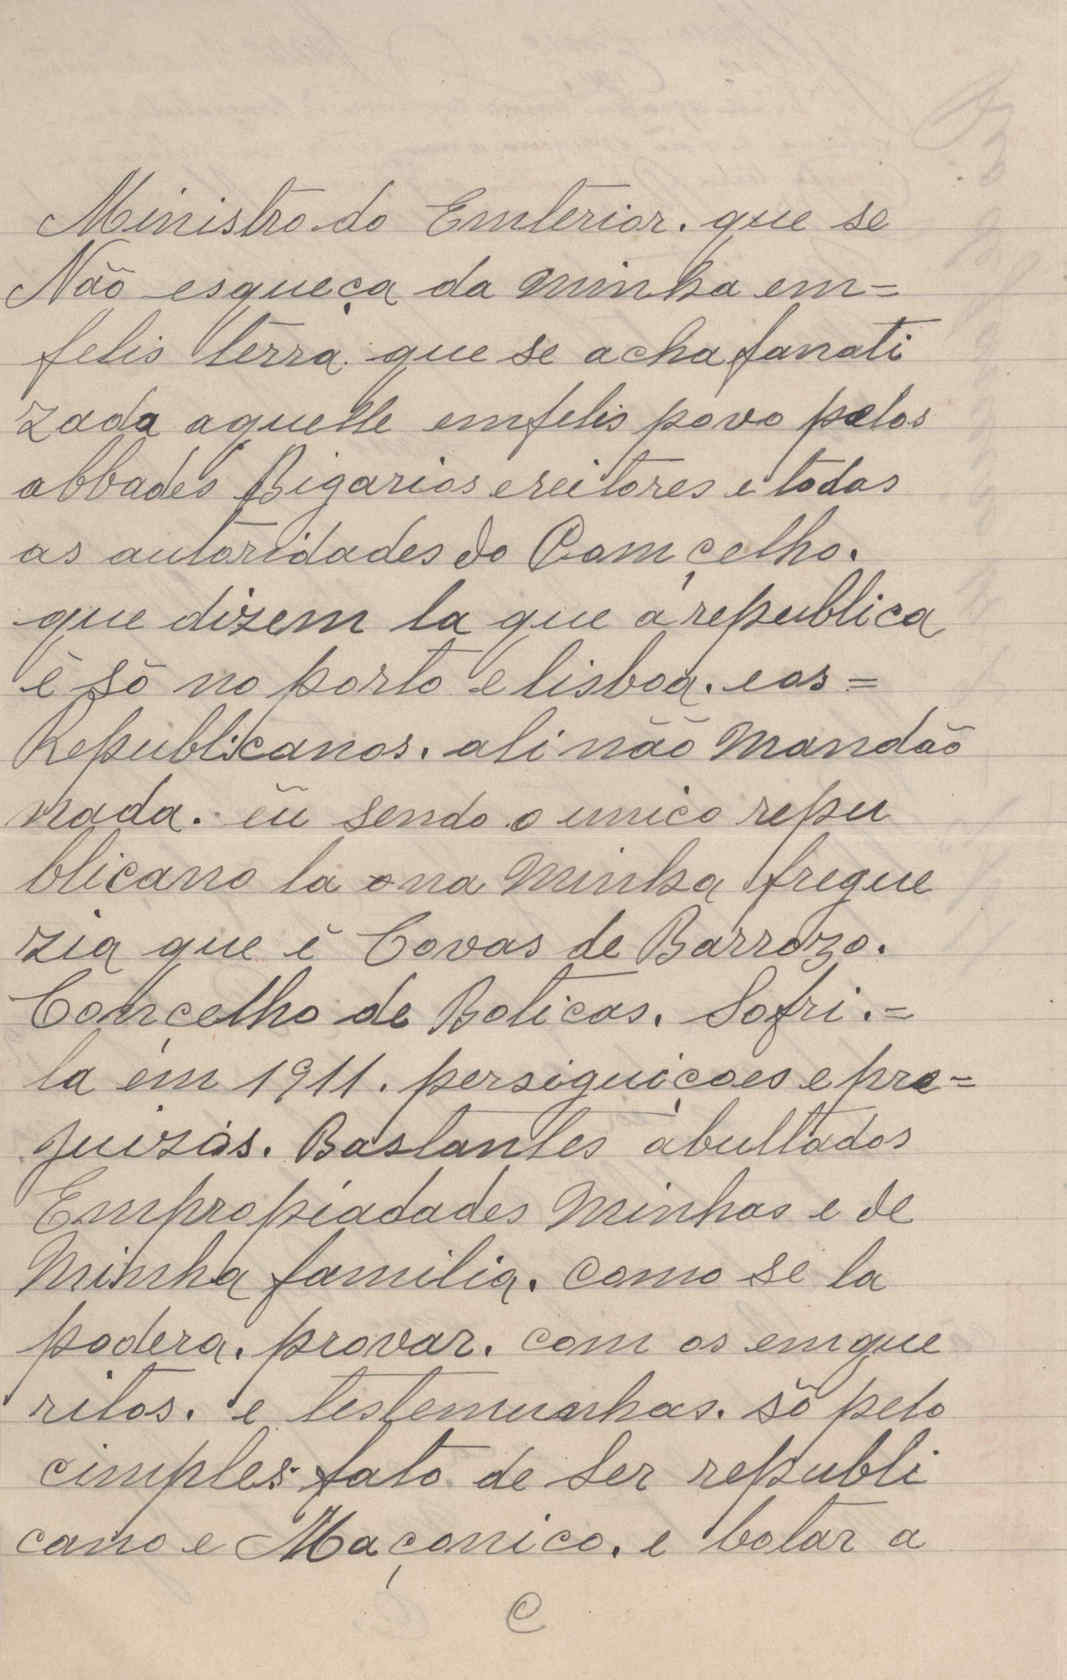 Ministro do Emterior. que se
Não esqueça da minha em=
felis terra que se acha fanati
zada aquelle emfelis povo pelos
abbades Bigarios e reitores e todas
as autoridades do Comçelho.
que dizem la que a republica
é só no porto e lisboa. e os=
Republicanos. ali não mandão
nada. eu sendo o unico repu
blicano la na minha fregue
zia que é Covas de Barrozo.
Conçelho de Boticas. Sofri.=
la em 1911. persiguiçoes e pre=
juizos. Bastantes abultados
Empropiadades minhas e de
Minha familia. como se la
podera. provar. com os emque
ritos. e testemunhas. só pelo
cimples fato de ser republi
cano e Maçonico. e botar a
C